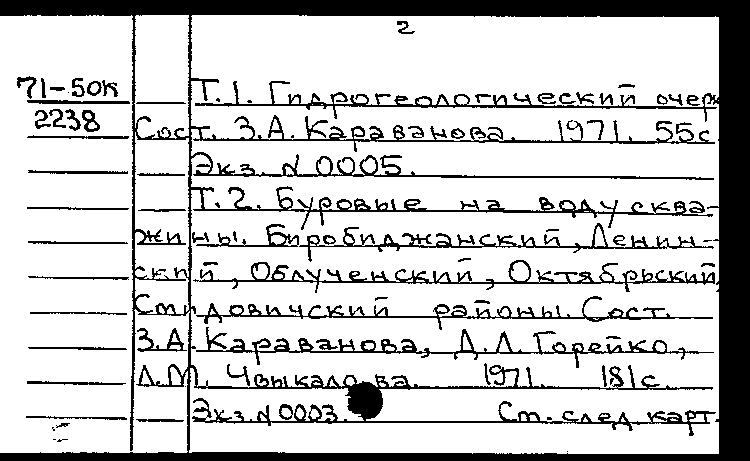 2
71-50к Т.1. Гидрогеологический очерк
2238 Сост. З.А. Караванова. 1971. 55с
Экз. N 0005.
Т.2. Буровые на воду сква-
жины. Биробиджанский, Ленин-
ский, Облученский, Октябрьский,
Смидовичский районы. Сост.
З.А. Караванова, Д.Л. Горейко,
Л.М. Чвыкалова. 1971. 181с.
Экз. N 0003. См. след. карт.